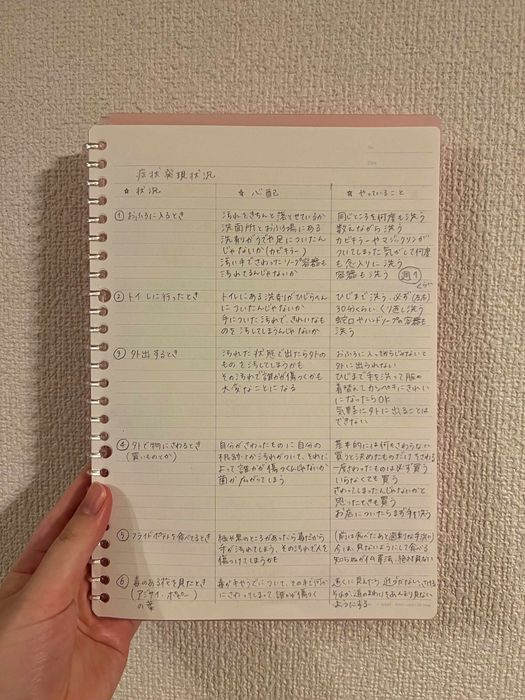 症状発現状況
☆ 状況
☆ 心配
☆ やっていること
① おふろに入るとき
汚れをきちんと落とせているか
洗面所とおふろ場にある
洗剤がうでや足についたん
じゃないか(カビキラー)
汚い手でさわったソープ容器も
汚れてるんじゃないか
同じところを何度も洗う
数えながら洗う
カビキラーやマジックリンが
ついてしまった気がして何度
も念入りに洗う
容器も洗う 週1くらい
② トイレに行ったとき
トイレにある洗剤がひじらへん
についたんじゃないか
手についた汚れで、きれいなも
のを汚してしまうんじゃないか
ひじまで洗う、必ず(左右)
30分くらい、くり返し洗う
蛇口やハンドソープの容器も
洗う
③ 外出するとき
汚れた状態で出たら外の
ものを汚してしまうかも
その汚れで誰かが傷つくかも
大変なことになる
おふろに入って切らじゃないと
外に出られない
ひじまで手を洗って服の
着替えてカンペキにきれい
になったらOK
気軽に外に出ることは
できない
④ 外で物にさわるとき
(買いものとか)
自分がさわったものに自分の
汚れがついて、それに
よって誰かが傷つくんじゃないか
菌が広がってしまう
基本的には何もさわらない
買うと決めたものだけをさわる
一度さわったものは必ず買う
いらなくても買う
さわってしまったんじゃないかと
思ったときも買う
お店についたらまず手を洗う
⑤ フライドポテトを食べるとき
緑や黒のところがあったら毒だから
手が汚れてしまう、その汚れで人を
傷つけてしまうかも
(前は食べたあと過剰な手洗い)
今は、見ないようにして食べる
知らぬが仏の寡法、絶対見ない
⑥ 毒のある花を見たとき
(アジサイ・ポピー)
の葉
毒が手やうでについて、その手で何か
にさわってしまって、誰かが傷つく
ようにする